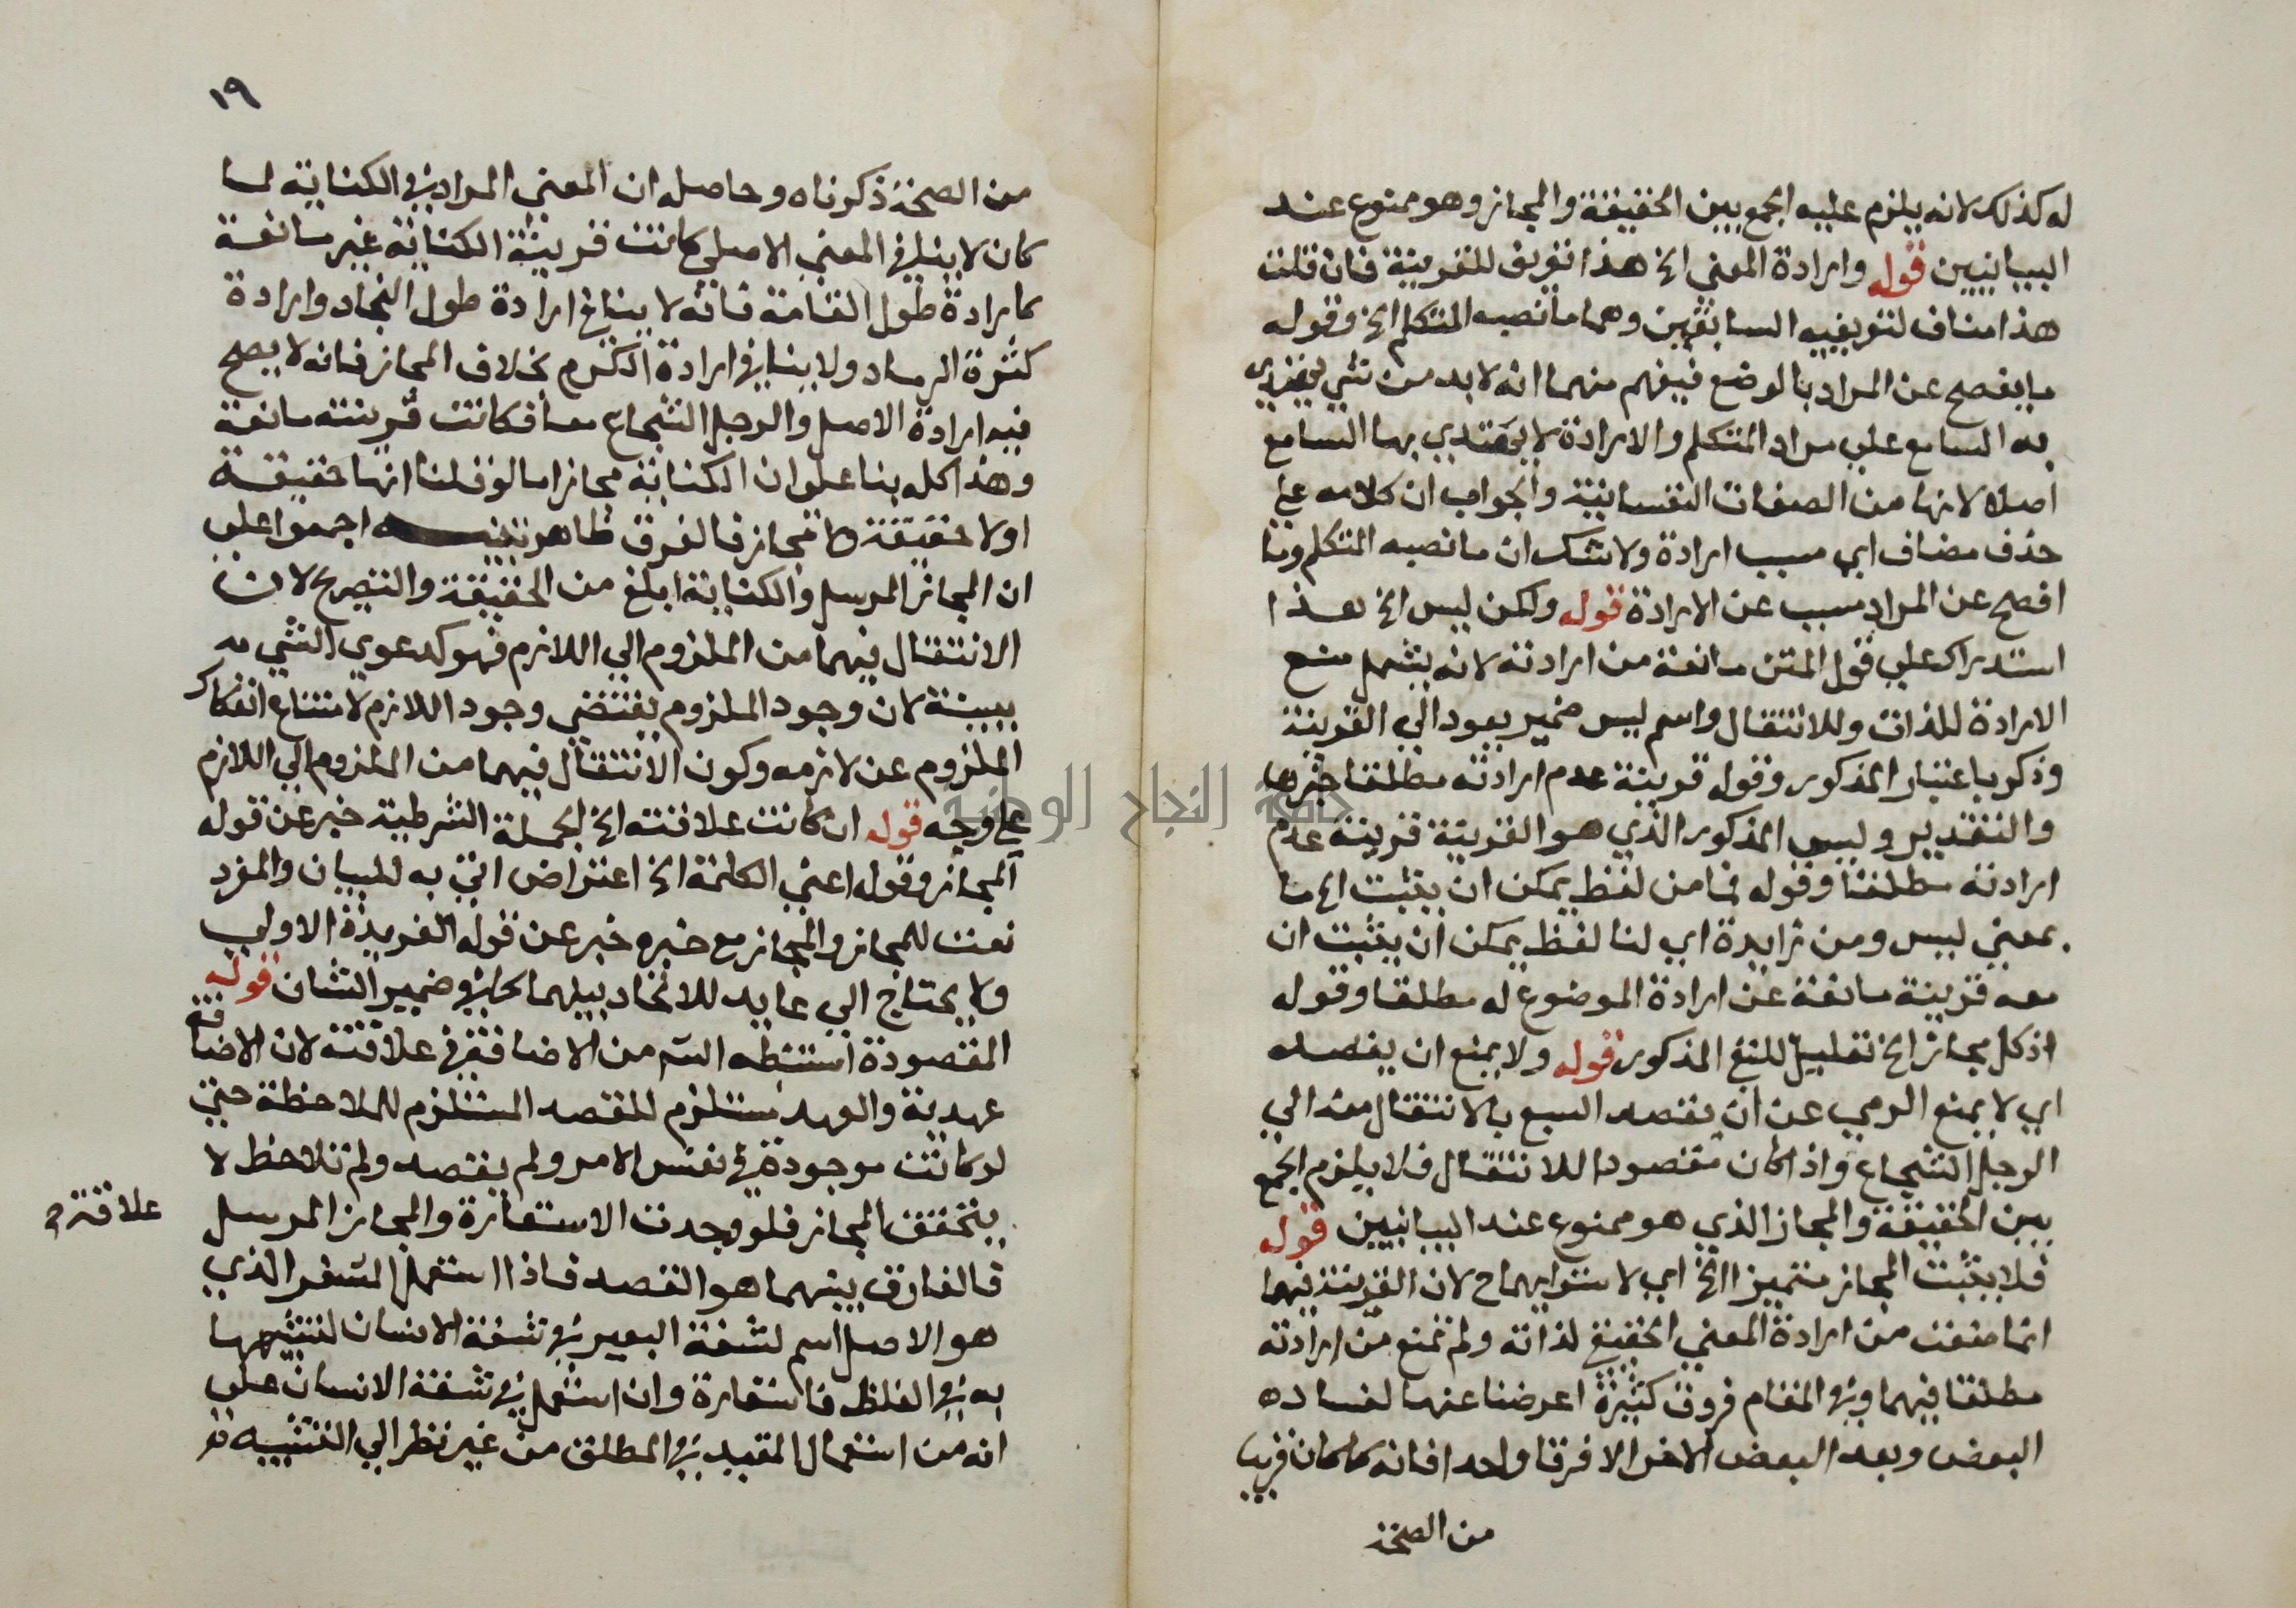 له كذلك لانه يلزم عليه الجمع بين الحقيقة والمجاز وهو ممنوع عند
البيانيين قوله وارادة المعني الخ هذا تعريف للقرينة فان قلت
هذا مناف لتعريفيه السابقين وهما ما نصبه المتكلم الخ وقوله
ما يفصح عن المراد بالوضع فيفهم منهما انه لا بد من شي يهتدي
به السامع علي مراد المتكلم والارادة لا يهتدي بها السامع
اصلا لانها من الصفات النفسانية والجواب ان كلامه علي
حذف مضاف اي سبب ارادة ولا شك ان ما نصبه المتكلم وما
افصح عن المراد مسبب عن الارادة قوله ولكن ليس الخ هذا
استدراك علي قول المتن مانعة من ارادته لانه يشمل منع
الارادة للذات وللانتقال واسم ليس ضمير يعود الي القرينة
وذكر باعتبار المذكور وقوله قرينة عدم ارادته مطلقا خبرها
والتقدير وليس المذكور الذي هو القرينة قرينة عدم
ارادته مطلقا وقوله فما من لفظ يمكن ان يثبت الخ ما
بمعني ليس ومن زايدة اي لنا لفظ يمكن ان يثبت ان
معه قرينة مانعة عن ارادة الموضوع له مطلقا وقوله
اذ كل مجاز الخ تعليل للنفي المذكور قوله ولا يمنع ان يقصد
اي لا يمنع الرمي عن ان يقصد السبع بالانتقال منه الي
الرجل الشجاع واذا كان مقصودا للانتقال فلا يلزم الجمع
بين الحقيقة والمجاز الذي هو ممنوع عند البيانيين قوله
فلا يثبت المجاز متميزا الخ اي لاستوايهما ح لان القرينة فيهما
انما منعت من ارادة المعني الحقيقي لذاته ولم تمنع من ارادته
مطلقا فيهما وفي المقام فروق كثيرة اعرضنا عنها لفساده
البعض وبعد البعض الاخر الا فرقا واحدا فانه لما كان قريبا
من الصحة
١٩
من الصحة ذكرناه وحاصله ان المعني المراد في الكناية لما
كان لا ينافي المعني الاصلي كانت قرينة الكناية غير مانعة
كارادة طول القامة فانه لا ينافي ارادة طول النجاد وارادة
كثرة الرماد ولا ينافي ارادة الكرم بخلاف المجاز فانه لا يصح
فيه ارادة الاصل والرجل الشجاع معا فكانت قرينته مانعة
وهذا كله بنا علي ان الكناية مجاز اما لو قلنا انها حقيقة
او لا حقيقة ولا مجاز فالفرق ظاهر تنبيه اجمعوا علي
ان المجاز المرسل والكناية ابلغ من الحقيقة والتصريح لان
الانتقال فيهما من الملزوم الي اللازم فهو كدعوي الشي
ببينة لان وجود الملزوم يقتضي وجود اللازم لامتناع انفكاك
الملزوم عن لازمه وكون الانتقال فيهما من الملزوم الي اللازم
علي وجه قوله ان كانت علاقته الخ الجملة الشرطية خبر عن قوله
المجاز وقوله اعني الكلمة الخ اعتراض اتي به للبيان والمفرد
نعت للمجاز والمجاز مع خبره خبر عن قوله الفريدة الاولي
ولا يحتاج الي عايد للاتحاد بينهما كما في ضمير الشان قوله
المقصودة استنبطه الش من الاضافة في علاقته لان الاضافة
عهدية والعهد مستلزم للقصد المستلزم للملاحظة حتي
لو كانت موجودة في نفس الامر ولم يقصد ولم تلاحظ لا
يتحقق المجاز فلو وجدت الاستعارة والمجاز المرسل
علاقة
فالفارق بينهما هو القصد فاذا استعمل المشفر الذي
هو الاصل اسم لشفة البعير في شفة الانسان لتشبيهها
به في الغلظ فاستعارة وان استعمل في شفة الانسان علي
انه من استعمال المقيد في المطلق من غير نظر الي التشبيه